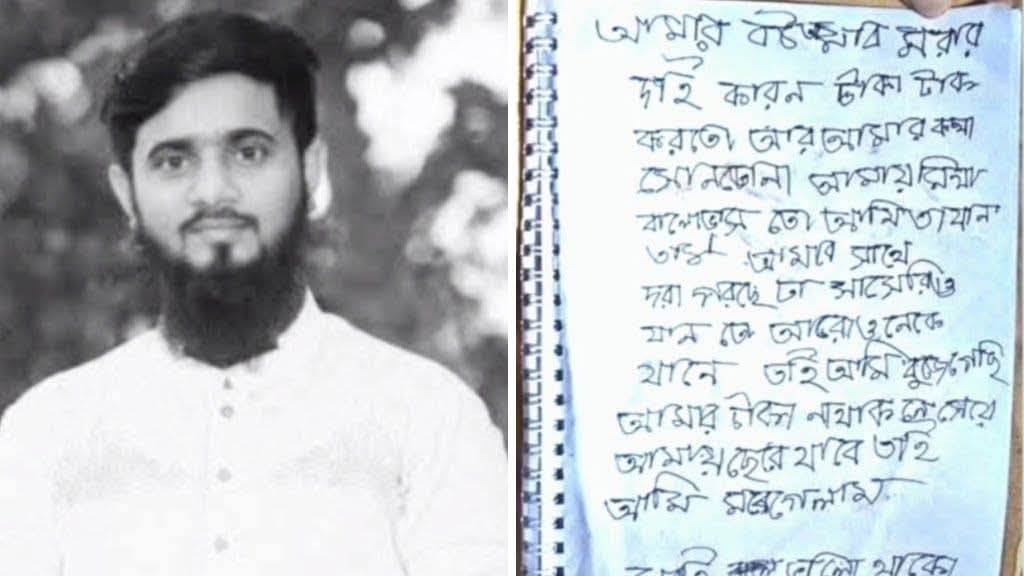 আমার বউআমার মরার
দাই কারন টাকা টাকা
করতো আর আমার কথা
সোনতোনা আমায় মিথ্যা
তো আমি তা যান
আমার সাথে
দরা পরছে
যান আরো ওনেকে
যানে তাই আমি বুজেগেছি
আমার টাকা নাথাক লে মেয়ে
আমায় ছেরে যাবে তাই
আমি মরেগেলাম
ভালো থাকো